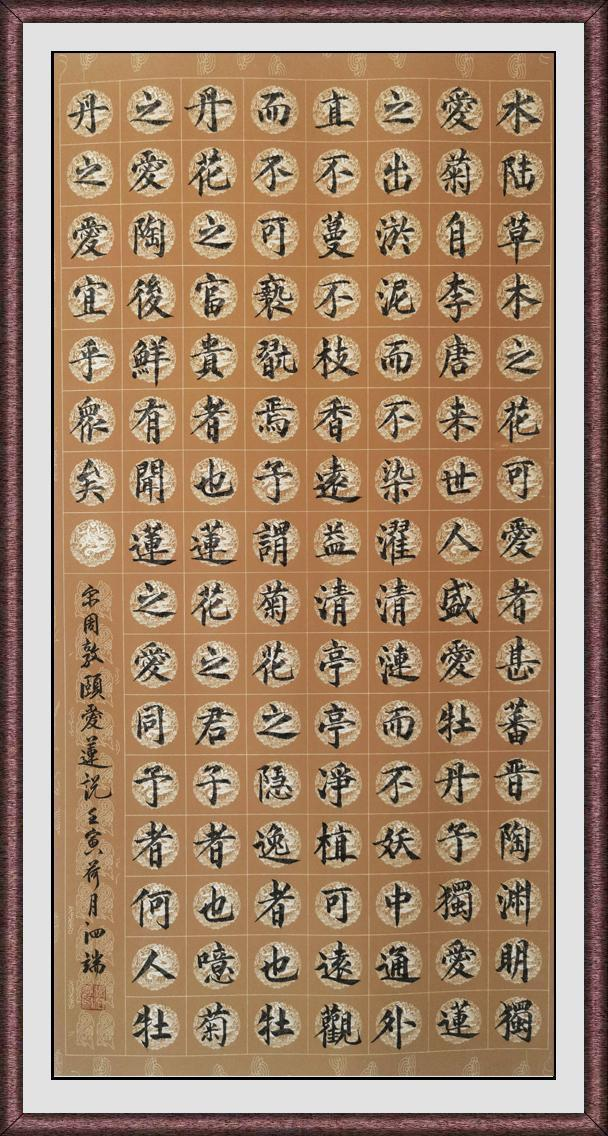 水陆草木之花可愛者甚蕃晋陶渊明獨
愛菊自李唐来世人盛愛牡丹予獨愛蓮
之出淤泥而不染濯清漣而不妖中通外
直不蔓不枝香遠益清亭亭淨植可遠觀
而不可亵翫焉予謂菊花之隐逸者也牡
丹花之富貴者也蓮花之君子者也噫菊
之愛陶後鮮有聞蓮之愛同予者何人牡
丹之愛宜乎衆矣
宋周敦頤愛蓮说壬寅荷月泗端